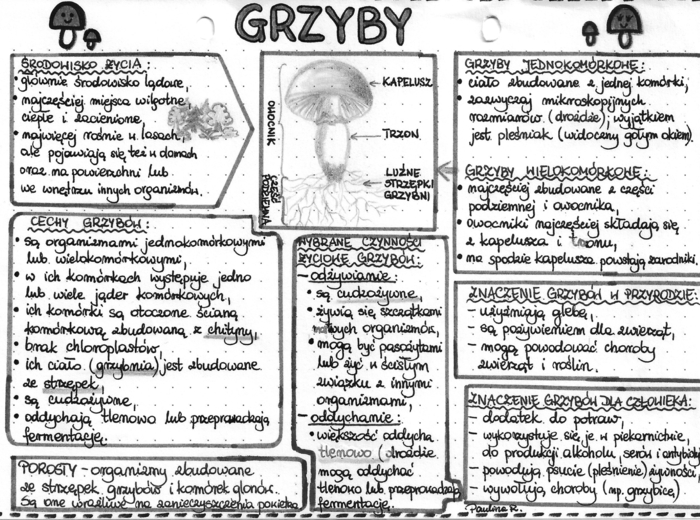 GRZYBY
ŚRODOWISKO ŻYCIA:
• głównie środowisko lądowe,
• najczęściej miejsca wilgotne,
ciepłe i zacienione,
• najwięcej rośnie w lasach,
ale pojawiają się też w domach
oraz na powierzchni lub
we wnętrzu innych organizmów.
OWOCNIK
CZĘŚĆ PODZIEMNA
KAPELUSZ
TRZON
LUŹNE
STRZĘPKI
GRZYBNI
GRZYBY JEDNOKOMÓRKOWE:
• ciało zbudowane z jednej komórki,
• zazwyczaj mikroskopijnych
rozmiarów (drożdże); wyjątkiem
jest pleśniak (widoczny gołym okiem).
GRZYBY WIELOKOMÓRKOWE:
• najczęściej zbudowane z części
podziemnej i owocnika,
• owocniki najczęściej składają się
z kapelusza i trzonu,
• na spodzie kapelusza powstają zarodniki.
CECHY GRZYBÓW:
• są organizmami jednokomórkowymi
lub wielokomórkowymi,
• w ich komórkach występuje jedno
lub wiele jąder komórkowych,
• ich komórki są otoczone ścianą
komórkową zbudowaną z chityny,
• brak chloroplastów,
• ich ciało (grzybnia) jest zbudowane
ze strzępek,
• są cudzożywne,
• oddychają tlenowo lub przeprowadzają
fermentację.
POROSTY - organizmy zbudowane
ze strzępek grzybów i komórek glonów.
Są one wrażliwe na zanieczyszczenia powietrza
WYBRANE CZYNNOŚCI
ŻYCIOWE GRZYBÓW:
- odżywianie:
• są cudzożywne,
• żywią się szczątkami
martwych organizmów,
• mogą być pasożytami
lub żyć w ścisłym
związku z innymi
organizmami,
- oddychanie:
• większość oddycha
tlenowo (drożdże
mogą oddychać
tlenowo lub przeprowadzają
fermentację.
ZNACZENIE GRZYBÓW W PRZYRODZIE:
- użyźniają glebę,
- są pożywieniem dla zwierząt,
- mogą powodować choroby
zwierząt i roślin.
ZNACZENIE GRZYBÓW DLA CZŁOWIEKA:
- dodatek do potraw,
- wykorzystuje się je w piekarnictwie,
do produkcji alkoholu, serów i antybioty
- powodują psucie (pleśnienie) żywności,
- wywołują choroby (np. grzybice).
Paulina R.